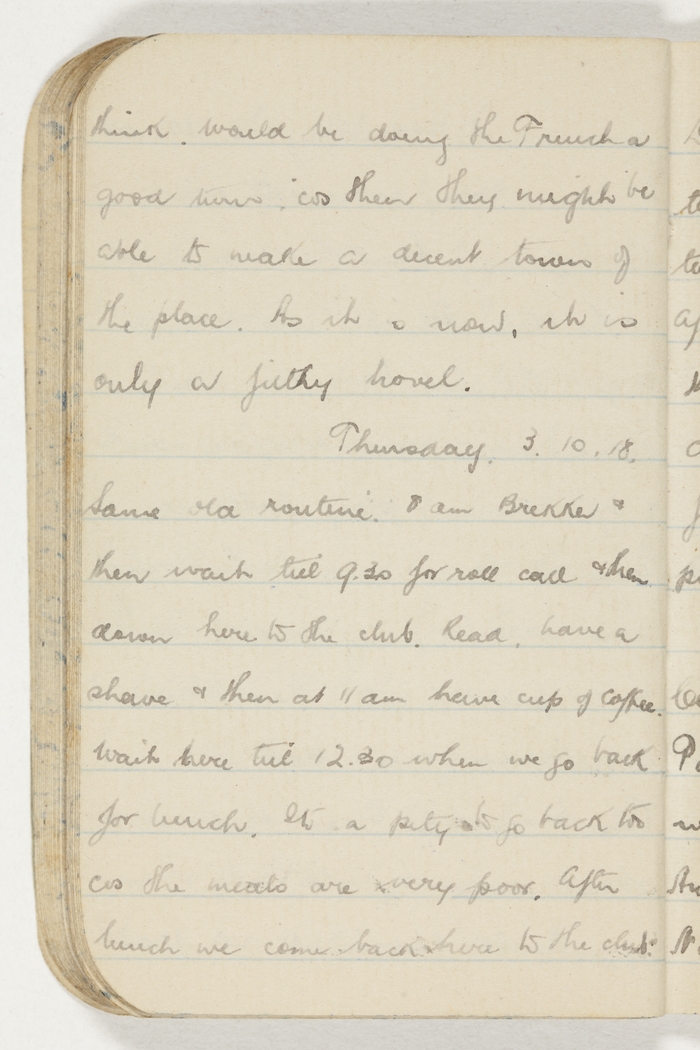 think. would be doing the French a
good turn, 'cos then they might be
able to make a decent town of
the place. As it is now, it is
only a filthy hovel.
Thursday. 3. 10. 18.
Same old routine. 8 am Brekker &
then wait till 9.30 for roll call & then
down here to the club. Read, have a
shave & then at 11 am have cup of coffee.
Wait here till 12.30 when we go back
for lunch. Its a pity to go back too
cos the meals are very poor. After
lunch we come back here to the club.